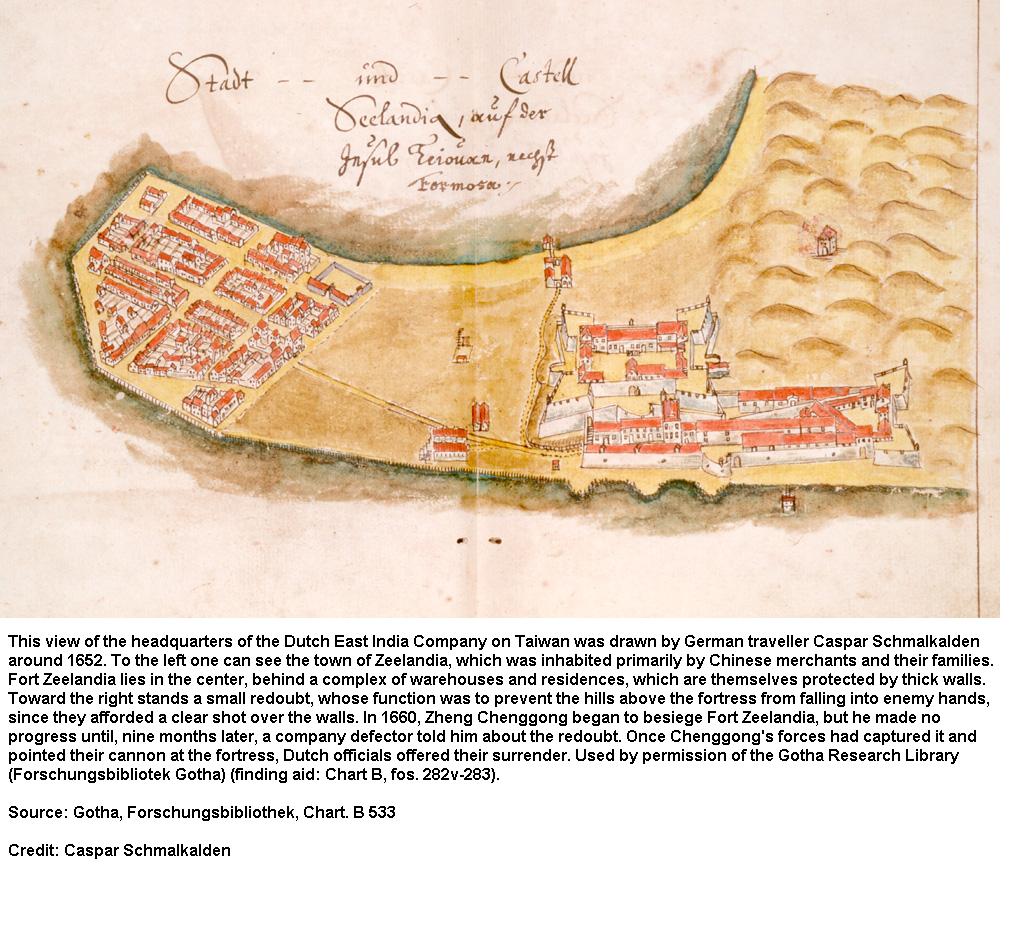 Stadt -- und -- Castell
Seelandia, auf der
Insul Teiouan, nechst
Formosa.
This view of the headquarters of the Dutch East India Company on Taiwan was drawn by German traveller Caspar Schmalkalden
around 1652. To the left one can see the town of Zeelandia, which was inhabited primarily by Chinese merchants and their families.
Fort Zeelandia lies in the center, behind a complex of warehouses and residences, which are themselves protected by thick walls.
Toward the right stands a small redoubt, whose function was to prevent the hills above the fortress from falling into enemy hands,
since they afforded a clear shot over the walls. In 1660, Zheng Chenggong began to besiege Fort Zeelandia, but he made no
progress until, nine months later, a company defector told him about the redoubt. Once Chenggong's forces had captured it and
pointed their cannon at the fortress, Dutch officials offered their surrender. Used by permission of the Gotha Research Library
(Forschungsbibliotek Gotha) (finding aid: Chart B, fos. 282v-283).
Source: Gotha, Forschungsbibliothek, Chart. B 533
Credit: Caspar Schmalkalden